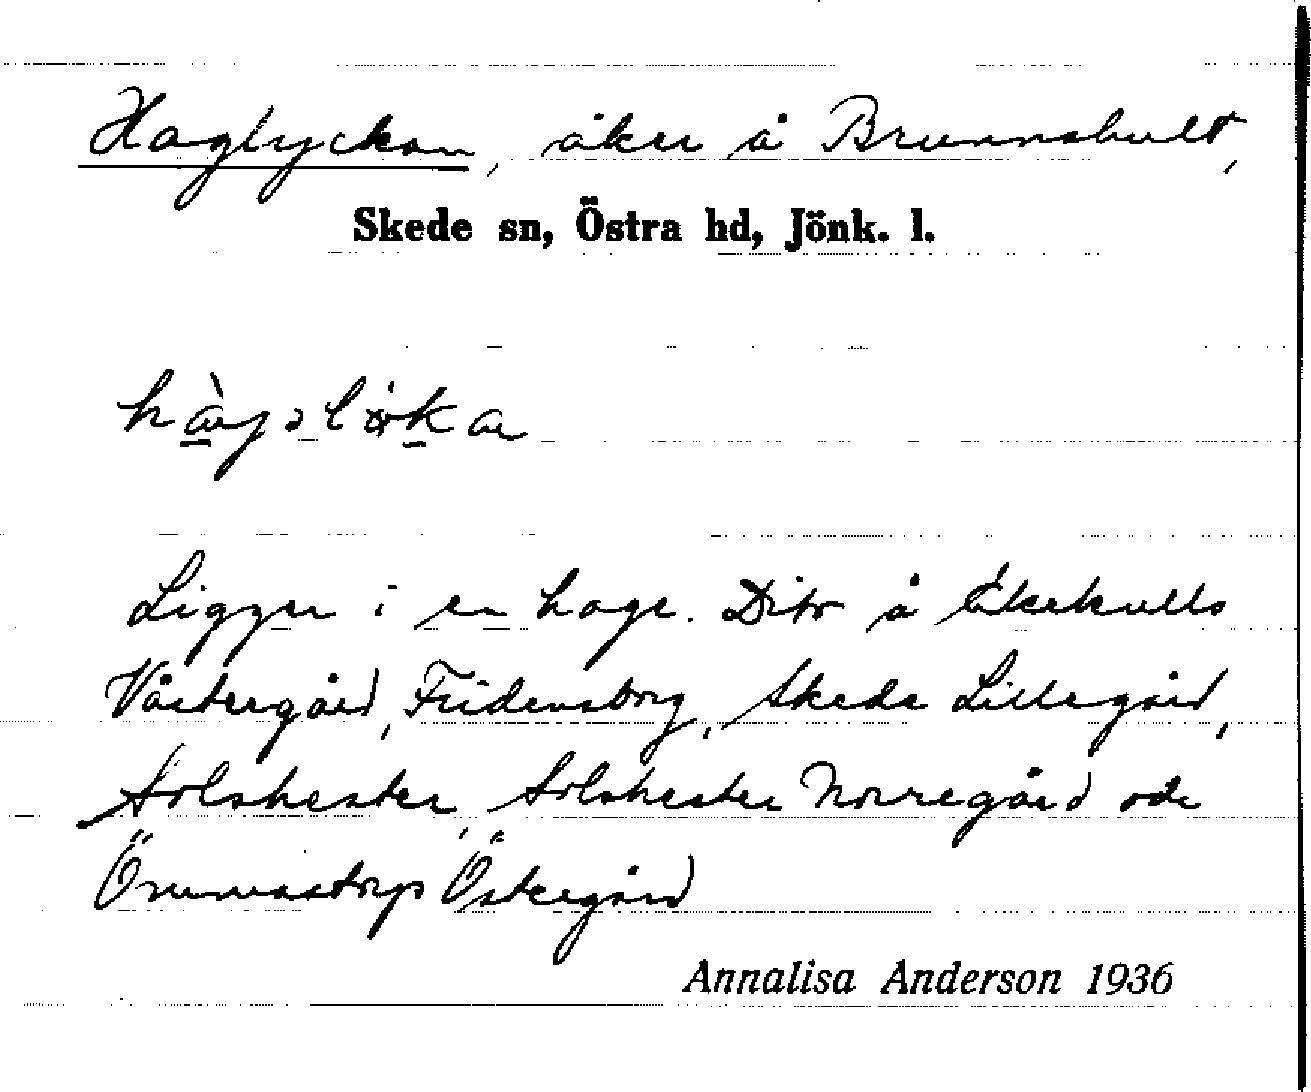 Haglyckan, åker å Brunnshult,
Skede sn, Östra hd, Jönk. l.
Ligger i en hage. Dito å Ekekulls
Västergård, Fridensborg, Skede Lillegård,
Solshester, Solshester Norregård och
Östergård
Annalisa Anderson 1936